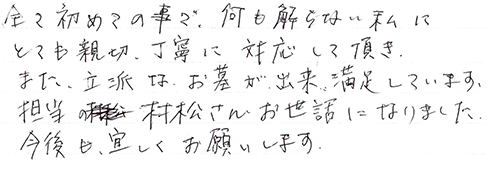 全て初めての事で、何も解らない私に
とても親切、丁寧に対応して頂き、
また、立派なお墓が出来、満足しています。
担当の村松さんお世話になりました。
今後も、宜しくお願いします。